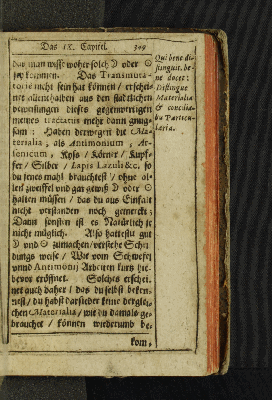 Das IX. Capitel. 309
das man wisse woher solch ☽ oder ☉
sey kommen. Das Transmuta-
torie nicht sein hat können / erschei-
net allenthalben aus den stadtlichen
beweisungen dieses gegenwertigen
meines tractatus mehr dann gnug-
sam : Haben derwegen die Ma-
terialia ; als Antimonium , Ar-
senicum , Ross / Körner / Kupf-
fer / Silber / Lapis Lazuli &c. so
du jenes mahl brauchtest / ohne al-
len zweiffel und gar gewiß ☽ oder ☉
halten müssen / das du aus Einfalt
nicht verstanden noch gemerckt :
Dann sonsten ist es Natürlich je
nicht müglich. Also hattestu gut
☽ und ☉ zumachen / verstehe Schei-
dungs weise / Wie vom Schwefel
unnd Antimonij Arbeiten kurtz hie-
bevor eröffnet. Solches erschei-
net auch daher / das du selbst beken-
nest / du habst darsieder keine derglei-
chen Materialia / wie du damals ge-
brauchet / können wiederumb be-
kom,
Qui bene di-
stinguit, be-
ne docet:
Distingue
Materialia
& concilia-
bis Particu-
laria.